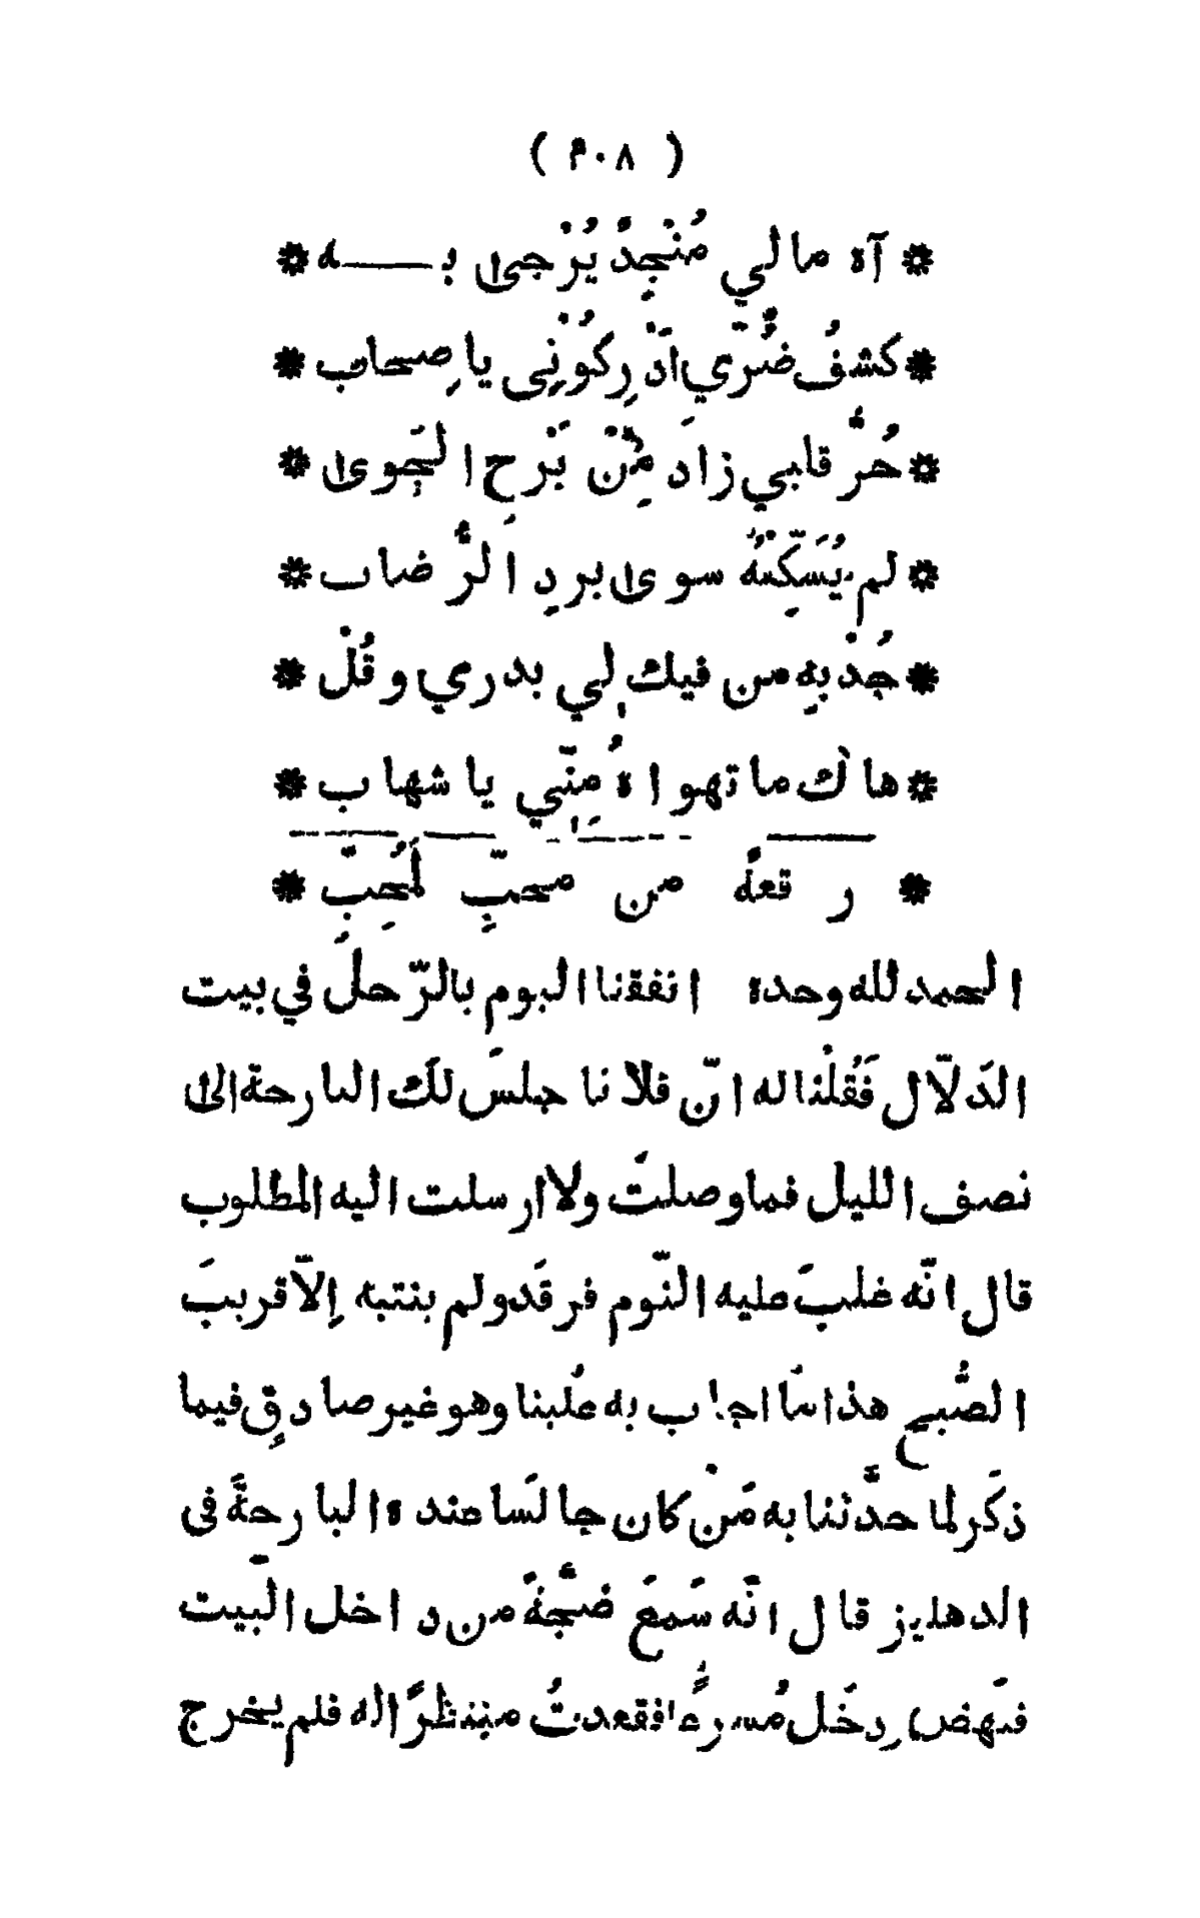 ( ٢٠٨ )
* آه مالي مُنْجِدٌ يُرْجىٰ بـــه *
* كشفُ ضُرّي اَدْرِكُوْنِي ياصِحاب *
* حُرُّ قلبي زادَ مِنْ بَرْحِ الجَوىٰ *
* لم يُسَكِّنْهُ سوىٰ بردِ الرُّضاب *
* جُدْ بِهِ من فيك لي بدري وقُلْ *
* هاك ما تهواهُ مِنّي يا شهاب *
* رقعةٌ من محبٍّ لمُحِبٍّ *
الحمد لله وحده اتفقنا اليوم بالرّحلَ في بيت
الدَّلّال فَقُلْنا له انّ فلانا جلسَ لكَ البارحة الىٰ
نصف الليل فما وصلتَ ولا ارسلت اليه المطلوب
قال انّه غلبَ عليه النّوم فرقَد ولم ينتبه إلّا قريبَ
الصُّبح هذا مَا اجاب به عُلينا وهو غير صادقٍ فيما
ذكَر لما حدَّثنا به مَنْ كان جالسًا عنده البارحةَ فى
الدهليز قال انَّه سَمعَ ضَجَّةً من داخل البّيت
فنَهض ودخَل مُسرعًا فقعدتُ منتظرًا له فلم يخرج